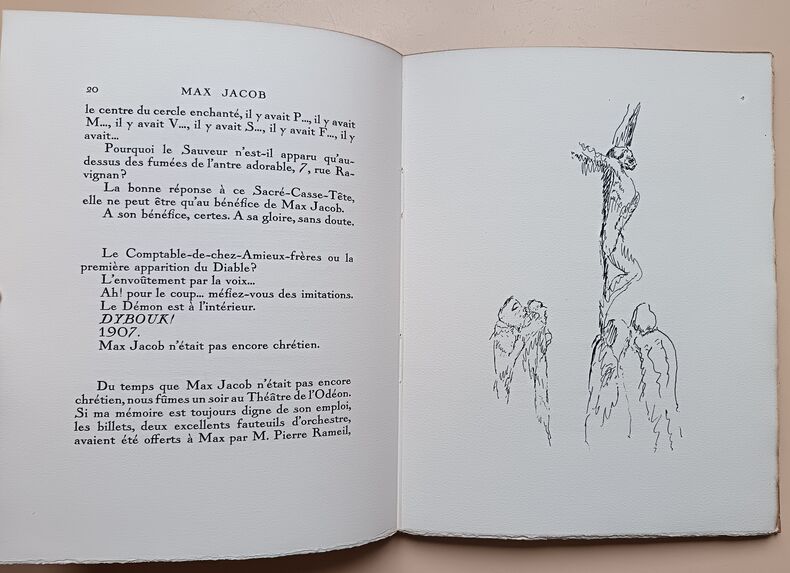 20
MAX JACOB
le centre du cercle enchanté, il y avait P..., il y avait
M..., il y avait V..., il y avait S..., il y avait F..., il y
avait...
Pourquoi le Sauveur n'est-il apparu qu'au-
dessus des fumées de l'antre adorable, 7, rue Ra-
vignan?
La bonne réponse à ce Sacré-Casse-Tête,
elle ne peut être qu'au bénéfice de Max Jacob.
A son bénéfice, certes. A sa gloire, sans doute.
Le Comptable-de-chez-Amieux-frères ou la
première apparition du Diable?
L'envoûtement par la voix...
Ah! pour le coup... méfiez-vous des imitations.
Le Démon est à l'intérieur.
DYBOUK!
1907.
Max Jacob n'était pas encore chrétien.
Du temps que Max Jacob n'était pas encore
chrétien, nous fûmes un soir au Théâtre de l'Odéon.
Si ma mémoire est toujours digne de son emploi,
les billets, deux excellents fauteuils d'orchestre,
avaient été offerts à Max par M. Pierre Rameil,